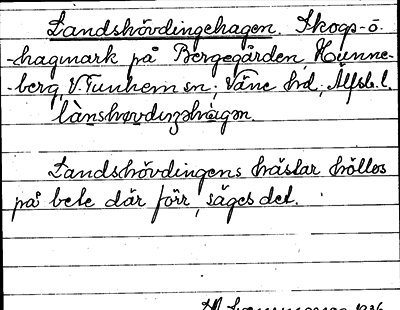 Landshövdingehagen. Skogs- o.
-hagmark på Bergegården, Hunne-
-berg, V. Tunhem sn; Väne hd; Älfsb. l.
lànshøvdiŋəhàgən.
Landshövdingens hästar hölles
på bete där förr, säges det.